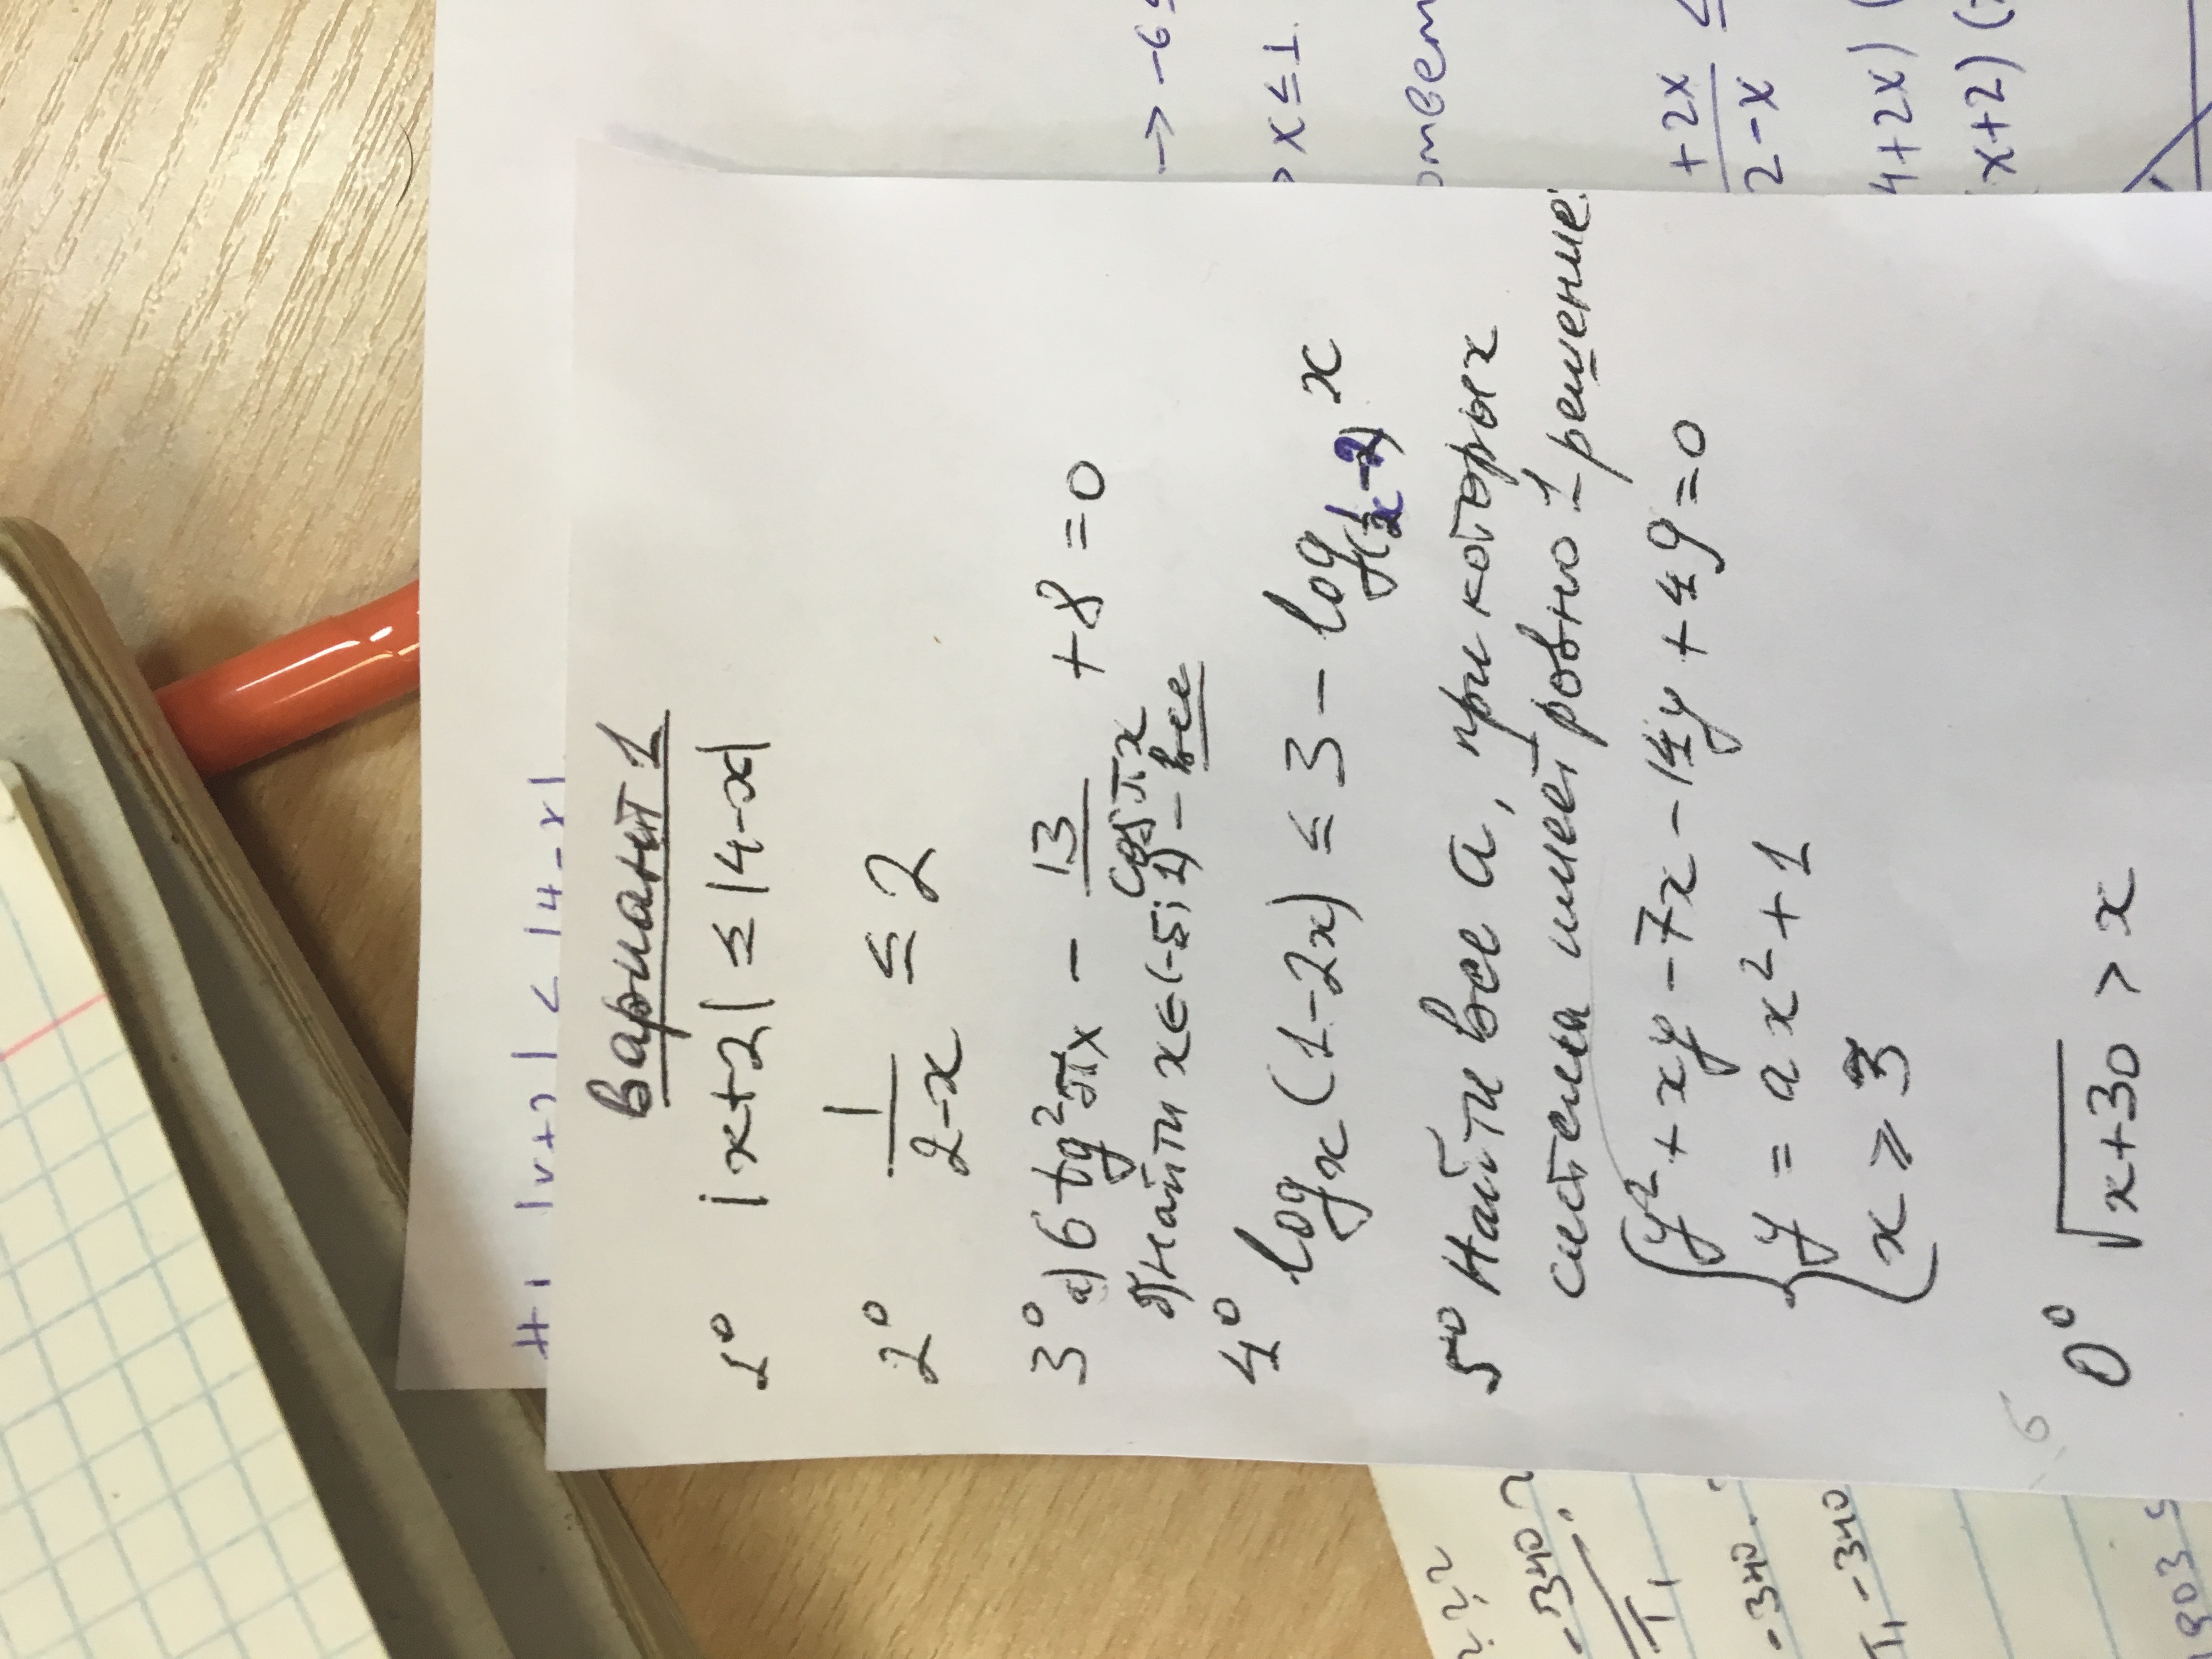 Вариант 1
1° |x+2| ≤ |4-x|
2° 1/(2-x) ≤ 2
3° а) 6 tg²πx - 13/cos πx + 8 = 0
б) Найти x∈(-5; 1) - все
4° log_x (1-2x) ≤ 3 - log_(1/x - 2) x
5° Найти все a, при которых
система имеет ровно 1 решение:
{ y² + xy - 7x - 14y + 49 = 0
y = ax² + 1
x ≥ 3
0° √(x+30) > x
→ -6 ≤
x ≤ 1
+2x
2-x ≤
4+2x) (
x+2) (
-340
-340
-340
903